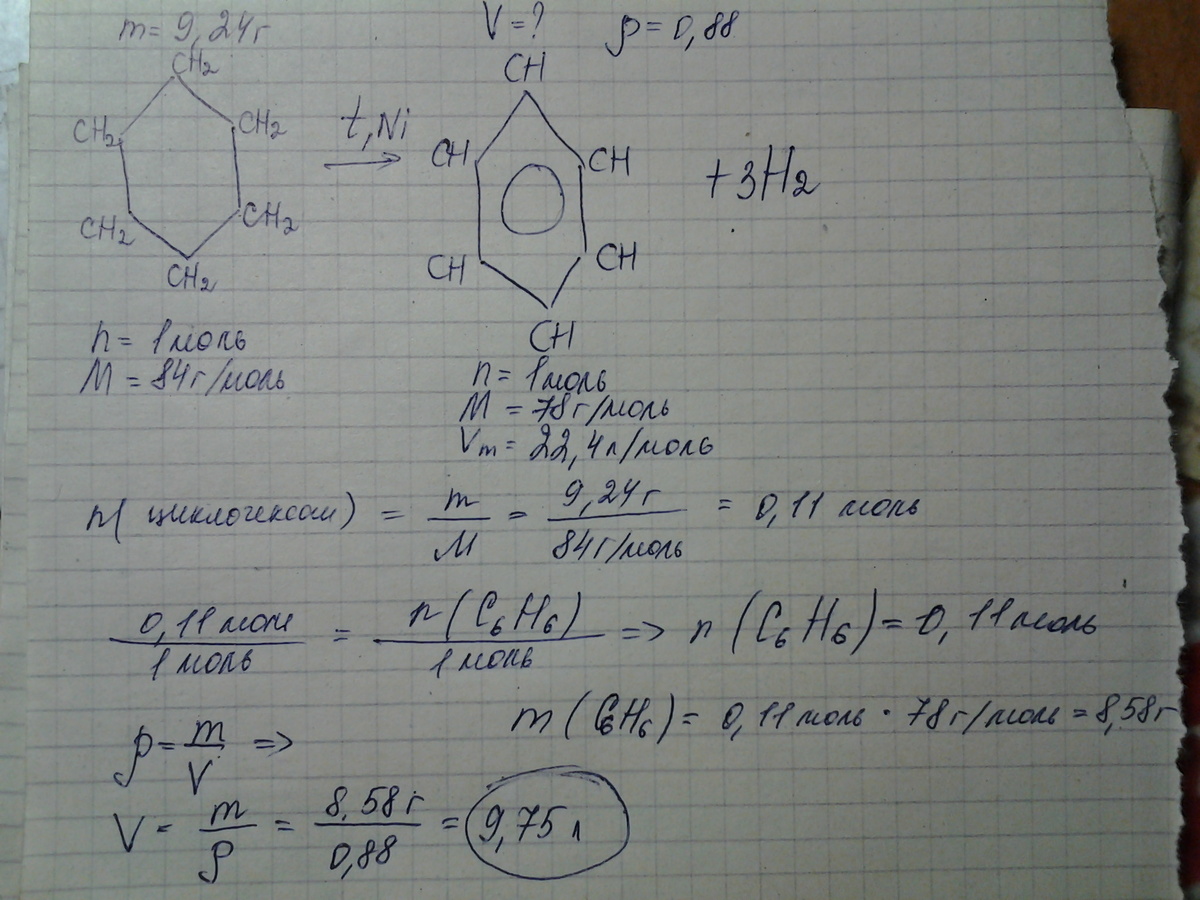 m = 9,24г V = ? ρ = 0,88
CH₂ CH
CH₂ CH₂ t, Ni CH CH + 3H₂
CH₂ CH₂ CH CH
CH₂ CH
n = 1моль
M = 84г/моль n = 1моль
M = 78г/моль
Vm = 22,4л/моль
n( циклогексан) = m/M = 9,24г/84г/моль = 0,11 моль
0,11моль/1моль = n(C₆H₆)/1моль => n(C₆H₆) = 0,11моль
m(C₆H₆) = 0,11моль · 78г/моль = 8,58г
ρ = m/V =>
V = m/ρ = 8,58г/0,88 = 9,75 л